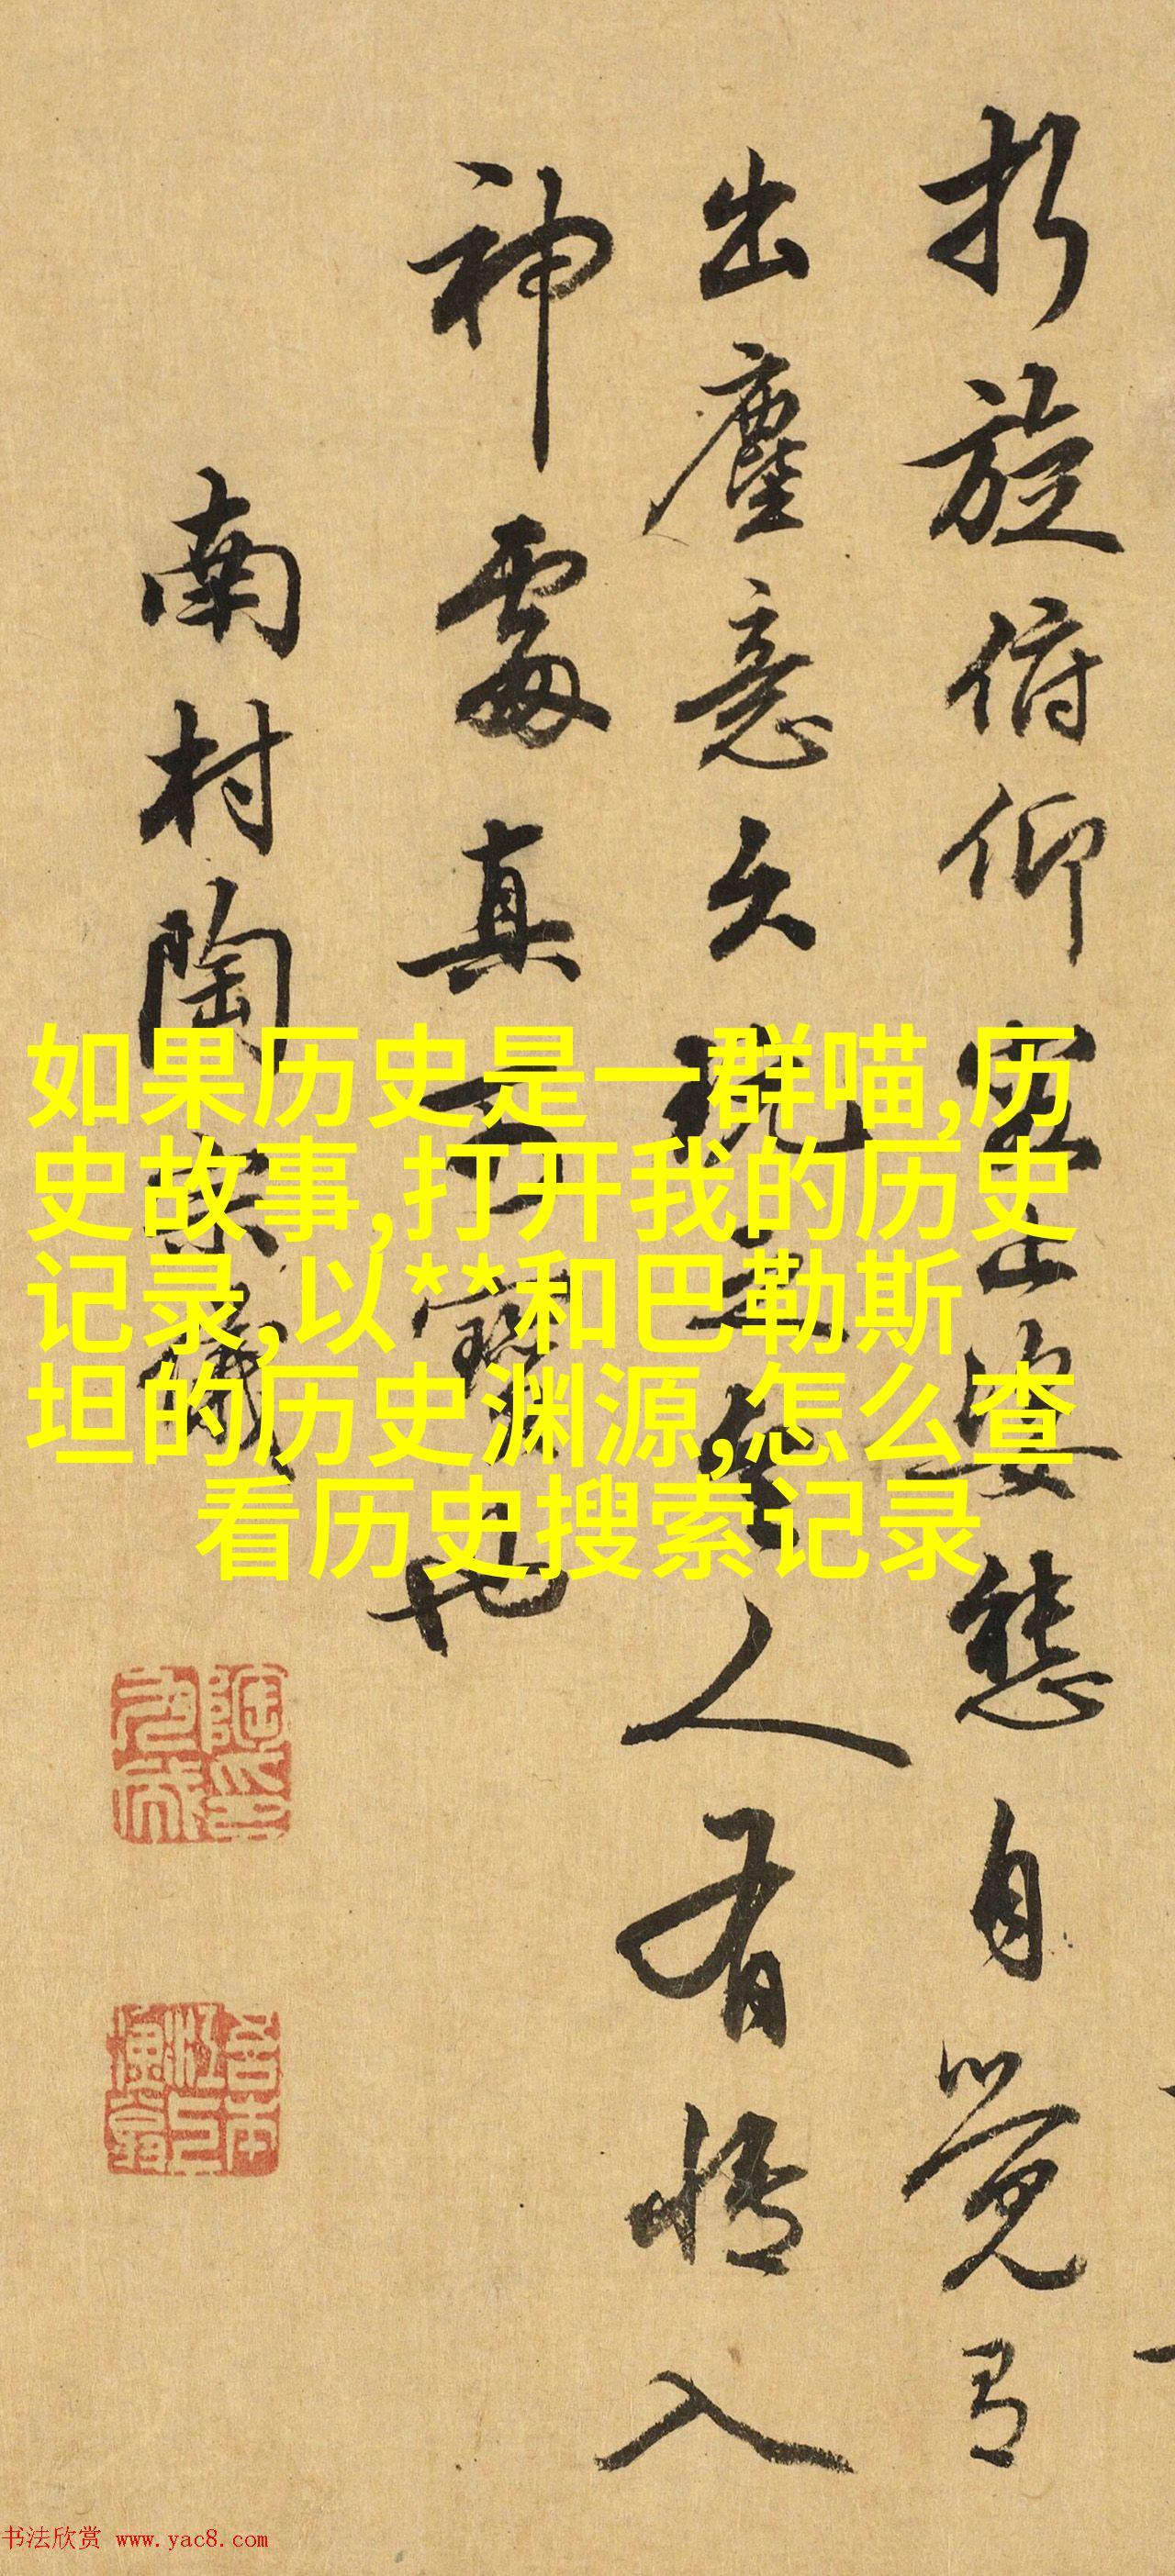 折旋俯仰姿態自覺有
出塵意久玩之令人有情入
神處真可寶也
南村陶宗儀
如果历史是一群喵,历
史故事,打开我的历史
记录,以**和巴勒斯
坦的历史渊源,怎么查
看历史搜索记录
书法欣赏 www.yac8.com